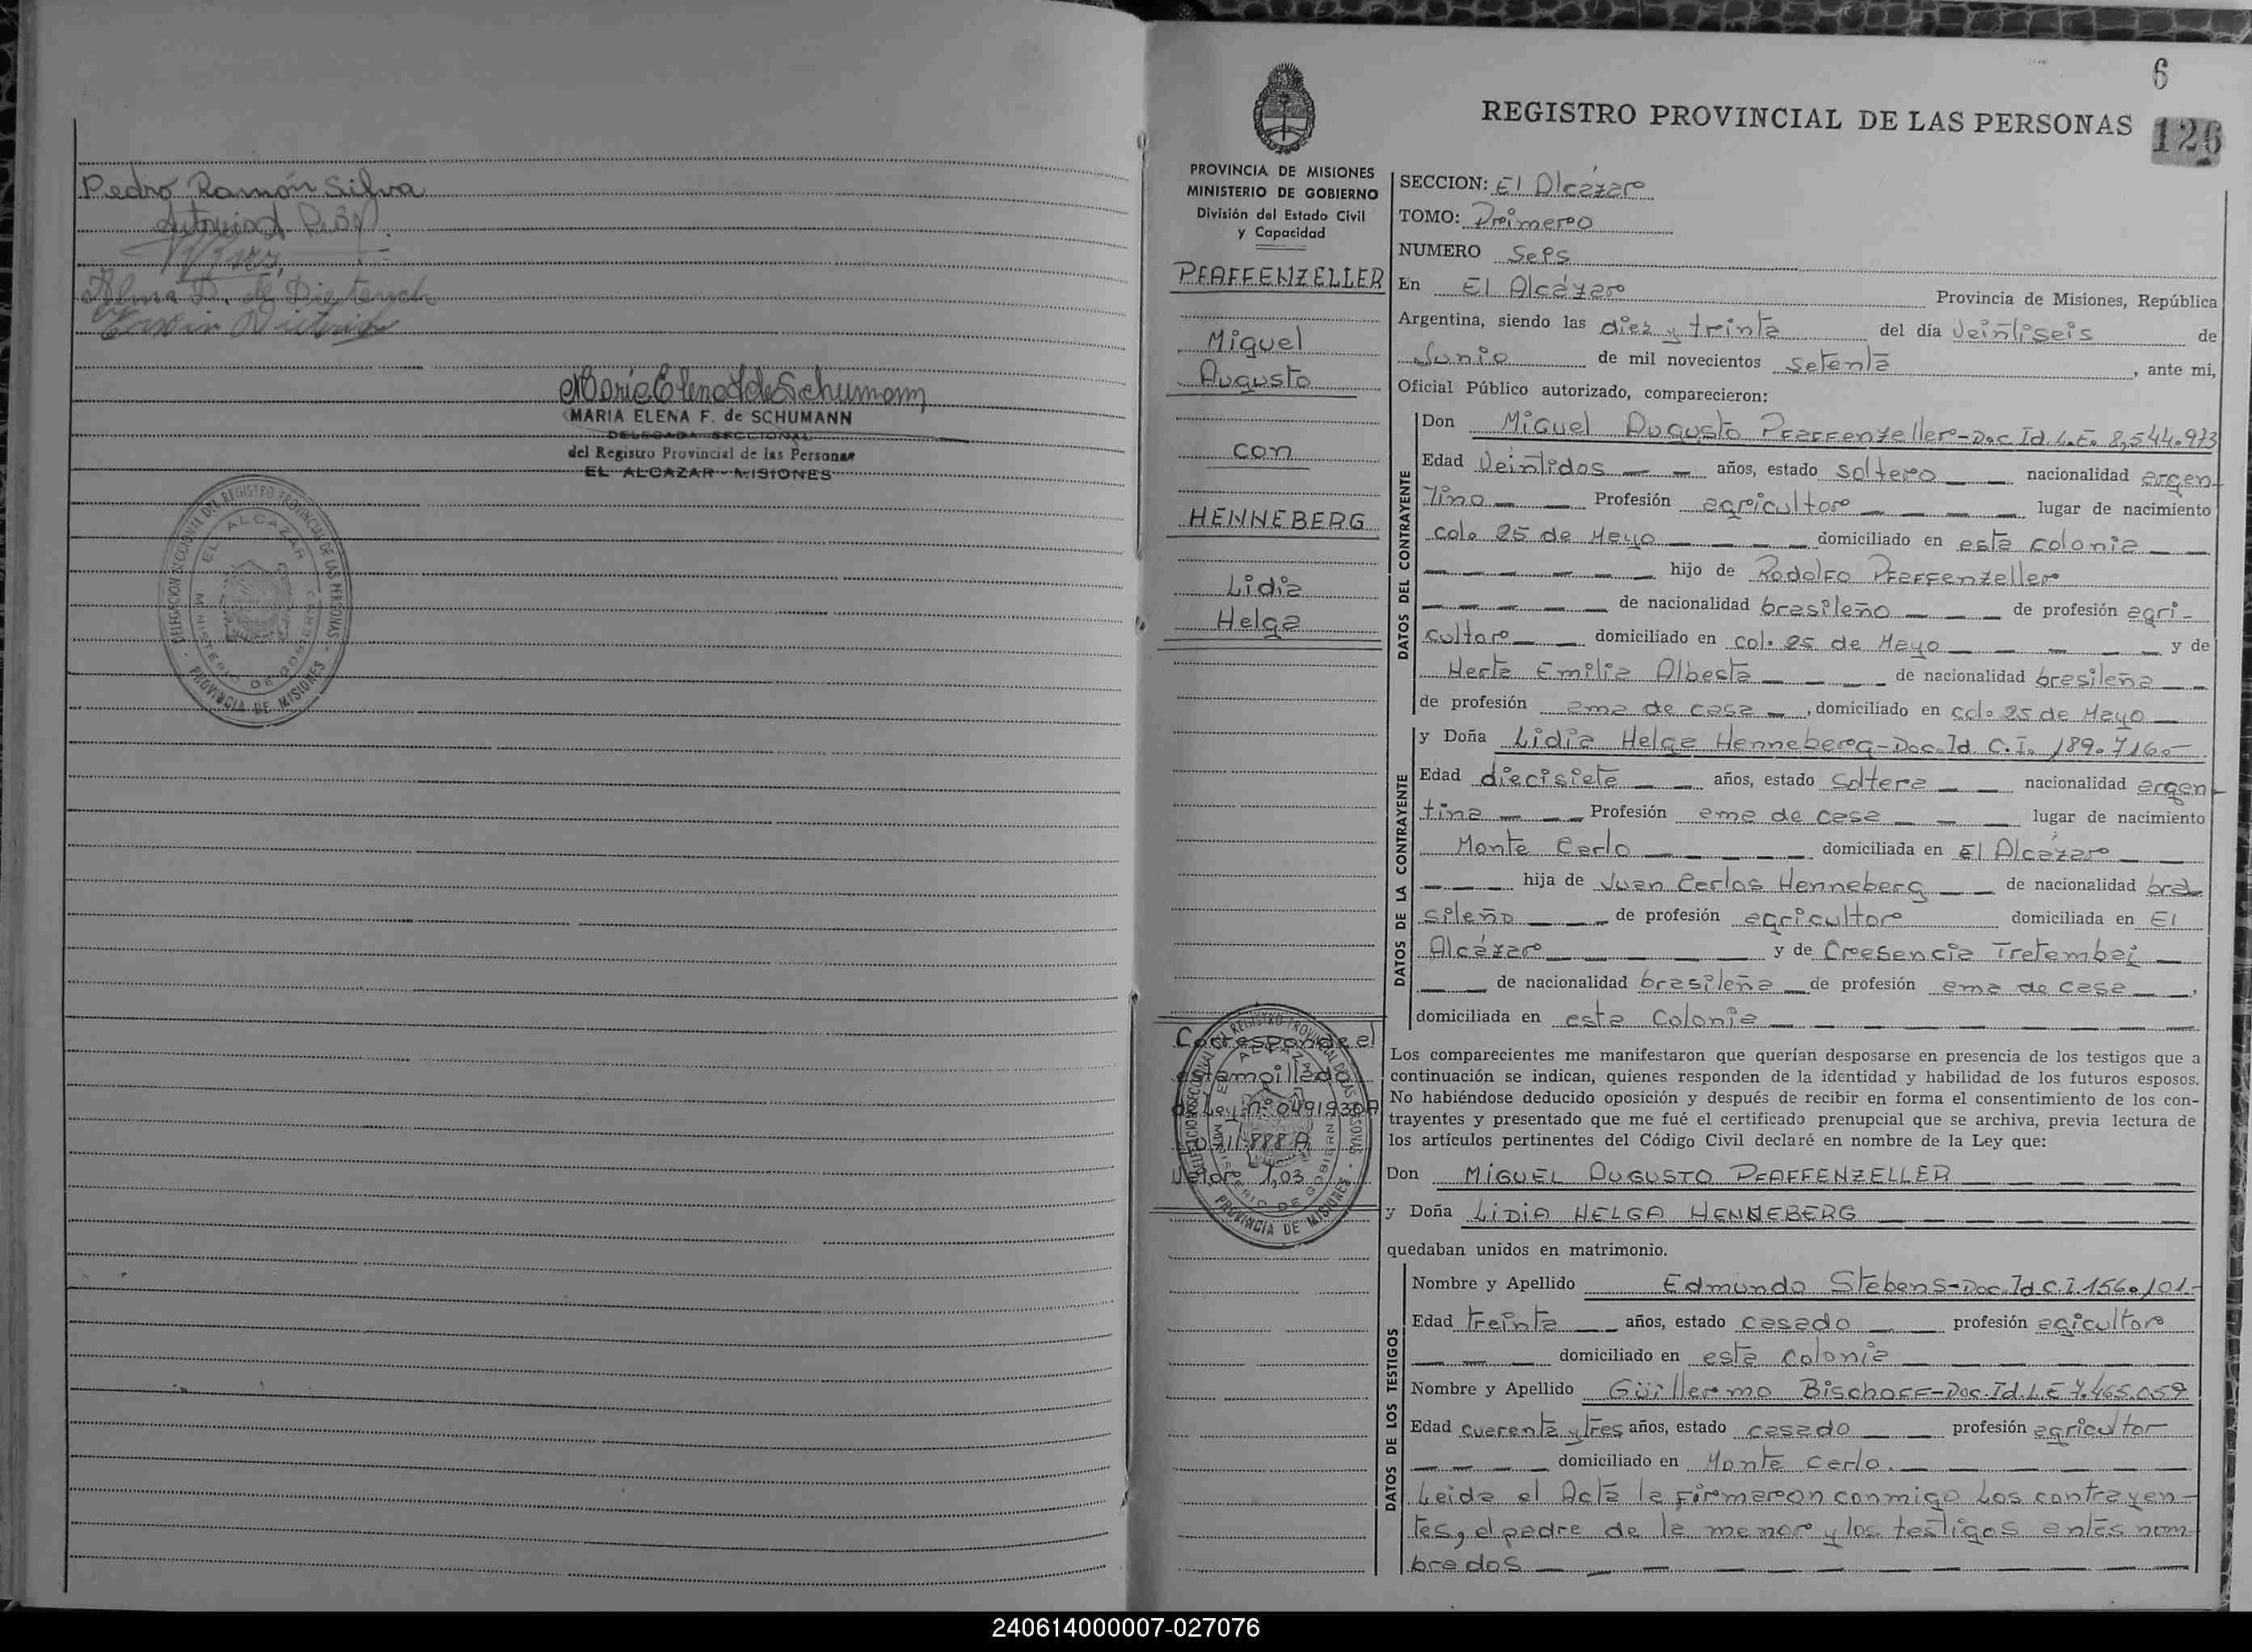 Pedro Ramón Silva
MARIA ELENA F. de SCHUMANN
DELEGADA SECCIONAL
del Registro Provincial de las Personas
EL ALCAZAR - MISIONES
DELEGACION SECCIONAL DEL REGISTRO PROVINCIAL DE LAS PERSONAS
EL ALCAZAR
MINISTERIO DE GOBIERNO
PROVINCIA DE MISIONES
6
REGISTRO PROVINCIAL DE LAS PERSONAS
126
PROVINCIA DE MISIONES
MINISTERIO DE GOBIERNO
División del Estado Civil
y Capacidad
PFAFFENZELLER
Miguel
Augusto
con
HENNEBERG
Lidia
Helga
Corresponde el
estampillado
de Ley nº 0491930A
Valor 1,03
SECCION: El Alcázar
TOMO: Primero
NUMERO Seis
En El Alcázar Provincia de Misiones, República
Argentina, siendo las diez y treinta del día veintiseis de
Junio de mil novecientos setenta, ante mi,
Oficial Público autorizado, comparecieron:
DATOS DEL CONTRAYENTE
Don Miguel Augusto Pfaffenzeller-Doc.Id.L.E. 8,544.973
Edad Veintidos años, estado soltero nacionalidad argen-
tino Profesión agricultor lugar de nacimiento
col. 25 de Mayo domiciliado en esta colonia
hijo de Rodolfo Pfaffenzeller
de nacionalidad brasileño de profesión agri-
cultor domiciliado en col. 25 de Mayo y de
Herta Emilia Albesta de nacionalidad brasileña
de profesión ama de casa, domiciliado en col. 25 de Mayo
DATOS DE LA CONTRAYENTE
y Doña Lidia Helga Henneberg-Doc.Id C.I. 189.716.-
Edad diecisiete años, estado soltera nacionalidad argen-
tina Profesión ama de casa lugar de nacimiento
Monte Carlo domiciliada en El Alcázar
hija de Juan Carlos Henneberg de nacionalidad bra-
sileño de profesión agricultor domiciliada en El
Alcázar y de Cresencia Tretembaj
de nacionalidad brasileña de profesión ama de casa,
domiciliada en esta Colonia
Los comparecientes me manifestaron que querían desposarse en presencia de los testigos que a
continuación se indican, quienes responden de la identidad y habilidad de los futuros esposos.
No habiéndose deducido oposición y después de recibir en forma el consentimiento de los con-
trayentes y presentado que me fué el certificado prenupcial que se archiva, previa lectura de
los artículos pertinentes del Código Civil declaré en nombre de la Ley que:
Don MIGUEL AUGUSTO PFAFFENZELLER
y Doña LIDIA HELGA HENNEBERG
quedaban unidos en matrimonio.
DATOS DE LOS TESTIGOS
Nombre y Apellido Edmundo Stebens-Doc.Id.C.I.156.101-
Edad treinta años, estado casado profesión agicultor
domiciliado en esta colonia
Nombre y Apellido Güillermo Bischoff-Doc.Id.L.E 7.465.059
Edad cuarenta y tres años, estado casado profesión agricultor
domiciliado en Monte Carlo.
Leida el Acta la firmaron conmigo los contrayen-
tes, el padre de la menor y los testigos antes nom
brados
240614000007-027076